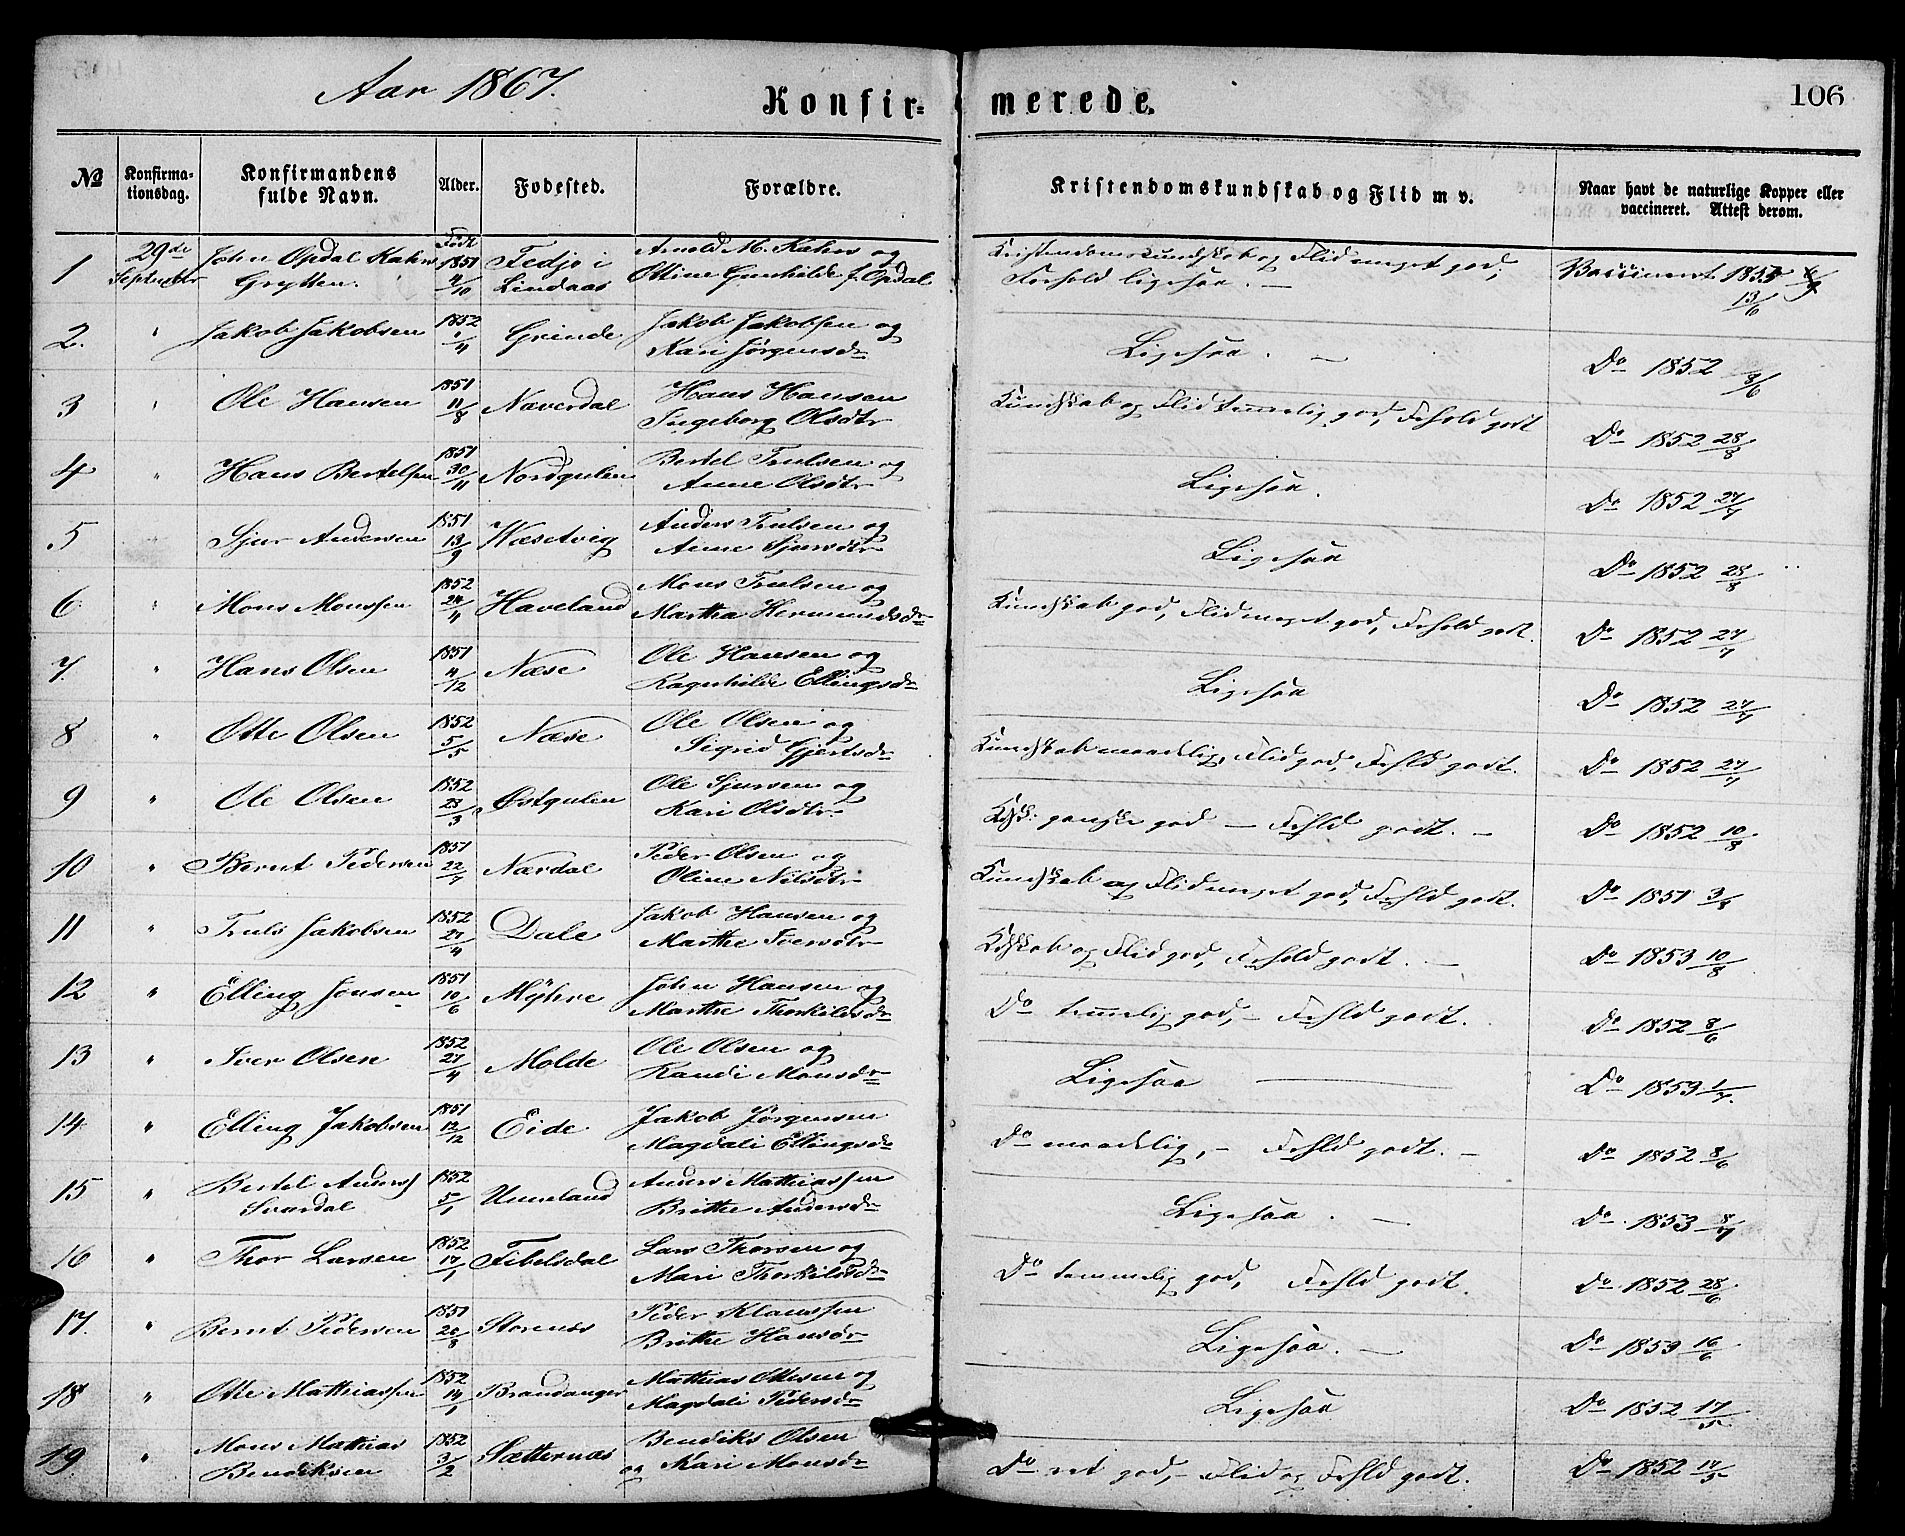 Aar 1867.
Konfir-
merede.
106
№
Konfirma-
tionsdag.
Konfirmandens
fulde Navn.
Alder.
Fødested.
Forældre.
Kristendomskundskab og Flid m v.
Naar havt de naturlige Kopper eller
vaccineret. Attest derom.
Født
1 29de September John Opdal Kahrs Grytten. 1851 4/10 Fedje i Lindaas Arnold M. Kahrs og Ottine Gunhilde f. Opdal Kristendomskundskab og Flid meget god; Forhold ligesaa. — Vaccineret 1853 13/6
2. " Jakob Jakobsen 1852 1/4 Grinde Jakob Jakobsen og Kari Jørgensdr Ligesaa. — Do 1852 8/6
3 " Ole Hansen 1851 11/8 Næverdal Hans Hansen Ingeborg Olsdtr Kundskab og Flid temmelig god, Forhold godt Do 1852 28/8
4 " Hans Bertelsen 1851 30/11 Nordgulen Bertel Trulsen og Anne Olsdtr Ligesaa. Do 1852 27/7
5 Sjur Andersen 1851 13/9 Wæsetvig Anders Trulsen og Anne Sjursdtr Ligesaa Do 1852 28/8
6 " Mons Monssen 1852 24/4 Haveland Mons Trulsen og Martha Hermundsdr Kundskab god, Flid meget god, Forhold godt. Do 1852 27/7
7. " Hans Olsen 1851 4/12 Næse Ole Hansen og Ragnhilde Ellingsdr Ligesaa Do 1852 27/7
8 " Otte Olsen 1852 5/5 Næse Ole Olsen og Sigrid Gjertsdr Kundskab maadelig, Flid god, Forhld godt. Do 1852 27/7
9 " Ole Olsen 1852 28/3 Østgulen Ole Sjursen og Kari Olsdtr Kdsk. ganske god — Forhld godt. — Do 1852 10/8
10 " Bernt Pedersen 1851 22/7 Nærdal Peder Olsen og Oline Nilsdtr Kundskab og Flid meget god, Forhld godt. Do 1851 3/8
11 " Truls Jakobsen 1852 27/4 Dale Jakob Hansen og Marthe Iversdtr Kdskab og Flid god, Forhold godt. — Do 1853 10/8
12 " Elling Jonsen 1851 10/6 Myhre John Hansen og Marthe Thorkildsdr Do temmelig god, — Forhld godt. Do 1852 8/6
13 " Iver Olsen 1852 27/4 Molde Ole Olsen og Randi Monsdr Ligesaa — Do 1853 1/7.
14 " Elling Jakobsen 1851 12/12 Eide Jakob Jørgensen Magdali Ellingsdr Do maadelig, — Forhld godt. — Do 1852 8/6
15 " Bertel Anders Sværdal 1852 5/1 Unneland Anders Mathiassen Brithe Andersdr Ligesaa. — Do 1853 8/7
16 " Thor Larsen 1852 17/1 Fibelsdal Lars Thorsen og Mari Thorkildsdr Do temmelig god, Forhld godt. Do 1852 28/6
17. " Bernt Pedersen 1851 20/8 Storenæs Peder Klaussen Brithe Hansdr Ligesaa. — Do 1853 16/6
18 " Otte Mathiassen 1852 14/1 Brandanger Mathias Ottesen og Magdali Pedersdr Ligesaa Do 1852 17/5
19 " Mons Mathias Bendiksen 1852 3/2 Sætternæs Bendiks Olsen og Kari Monsdr Do ret god, — Flid og Forhld godt. Do 1852 17/5